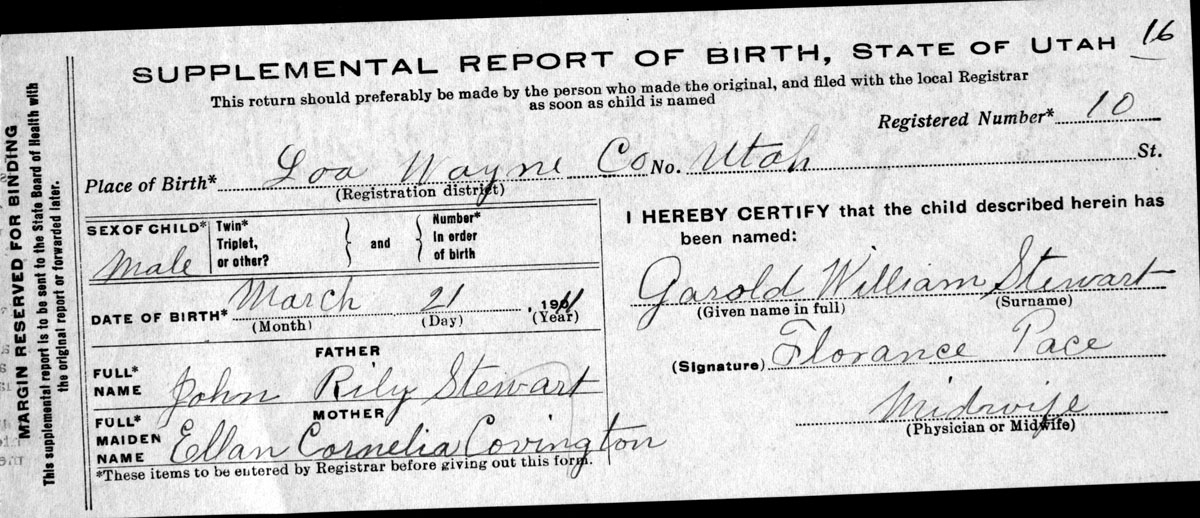 16
SUPPLEMENTAL REPORT OF BIRTH, STATE OF UTAH
This return should preferably be made by the person who made the original, and filed with the local Registrar
as soon as child is named
Registered Number* 10
Place of Birth* Loa Wayne Co No. Utah St.
(Registration district)
SEX OF CHILD* Male
Twin*
Triplet,
or other?
} and {
Number*
In order
of birth
DATE OF BIRTH* March 21, 1911
(Month) (Day) (Year)
FATHER
FULL*
NAME John Rily Stewart
MOTHER
FULL*
MAIDEN
NAME Ellan Cornelia Covington
*These items to be entered by Registrar before giving out this form.
I HEREBY CERTIFY that the child described herein has
been named:
Garold William Stewart
(Given name in full) (Surname)
(Signature) Florance Pace
Midwife
(Physician or Midwife)
MARGIN RESERVED FOR BINDING
This supplemental report is to be sent to the State Board of Health with
the original report or forwarded later.